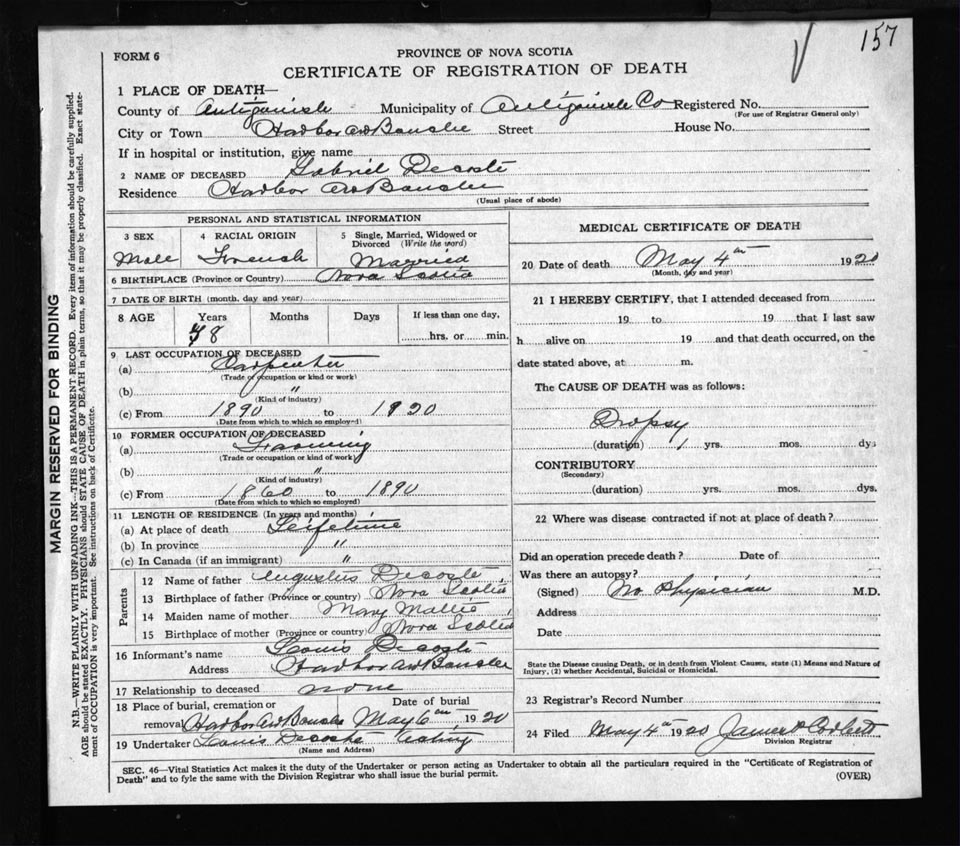 157
FORM 6
PROVINCE OF NOVA SCOTIA
CERTIFICATE OF REGISTRATION OF DEATH
1 PLACE OF DEATH—
County of Antigonish Municipality of Antigonish Co Registered No.
(For use of Registrar General only)
City or Town Harbor au Bouche Street House No.
If in hospital or institution, give name
2 NAME OF DECEASED Gabriel Decoste
Residence Harbor au Bouche
(Usual place of abode)
PERSONAL AND STATISTICAL INFORMATION
3 SEX
Male
4 RACIAL ORIGIN
French
5 Single, Married, Widowed or Divorced (Write the word)
Married
6 BIRTHPLACE (Province or Country) Nova Scotia
7 DATE OF BIRTH (month, day and year)
8 AGE Years Months Days If less than one day,
78 hrs. or min.
9 LAST OCCUPATION OF DECEASED
(a) Carpenter
(Trade or occupation or kind or work)
(b) "
(Kind of industry)
(c) From 1890 to 1920
(Date from which to which so employed)
10 FORMER OCCUPATION OF DECEASED
(a) Farming
(Trade or occupation or kind of work)
(b) "
(Kind of industry)
(c) From 1860 to 1890
(Date from which to which so employed)
11 LENGTH OF RESIDENCE (In years and months)
(a) At place of death Leifetime
(b) In province "
(c) In Canada (if an immigrant) "
Parents
12 Name of father Augustus Decoste
13 Birthplace of father (Province or country) Nova Scotia
14 Maiden name of mother Mary
15 Birthplace of mother (Province or country) Nova Scotia
16 Informant's name Louis Decoste
Address Harbor au Bouche
17 Relationship to deceased none
18 Place of burial, cremation or removal Harbor au Bouche Date of burial May 6th 1920
19 Undertaker Louis Decoste Acting
(Name and Address)
MEDICAL CERTIFICATE OF DEATH
20 Date of death May 4th 1920
(Month, day and year)
21 I HEREBY CERTIFY, that I attended deceased from
19 to 19 that I last saw
h alive on 19 and that death occurred, on the
date stated above, at m.
The CAUSE OF DEATH was as follows:
Dropsy
(duration) 1 yrs. mos. dys
CONTRIBUTORY
(Secondary)
(duration) yrs. mos. dys.
22 Where was disease contracted if not at place of death?
Did an operation precede death? Date of
Was there an autopsy?
(Signed) No Physician M.D.
Address
Date
State the Disease causing Death, or in death from Violent Causes, state (1) Means and Nature of
Injury, (2) whether Accidental, Suicidal or Homicidal.
23 Registrar's Record Number
24 Filed May 4th 1920 James Corbett
Division Registrar
SEC. 46—Vital Statistics Act makes it the duty of the Undertaker or person acting as Undertaker to obtain all the particulars required in the "Certificate of Registration of
Death" and to fyle the same with the Division Registrar who shall issue the burial permit.
(OVER)
MARGIN RESERVED FOR BINDING
N.B.—WRITE PLAINLY WITH UNFADING INK—THIS IS A PERMANENT RECORD. Every item of information should be carefully supplied.
AGE should be stated EXACTLY. PHYSICIANS should STATE CAUSE OF DEATH in plain terms, so that it may be properly classified. Exact state-
ment of OCCUPATION is very important. See instructions on back of Certificate.